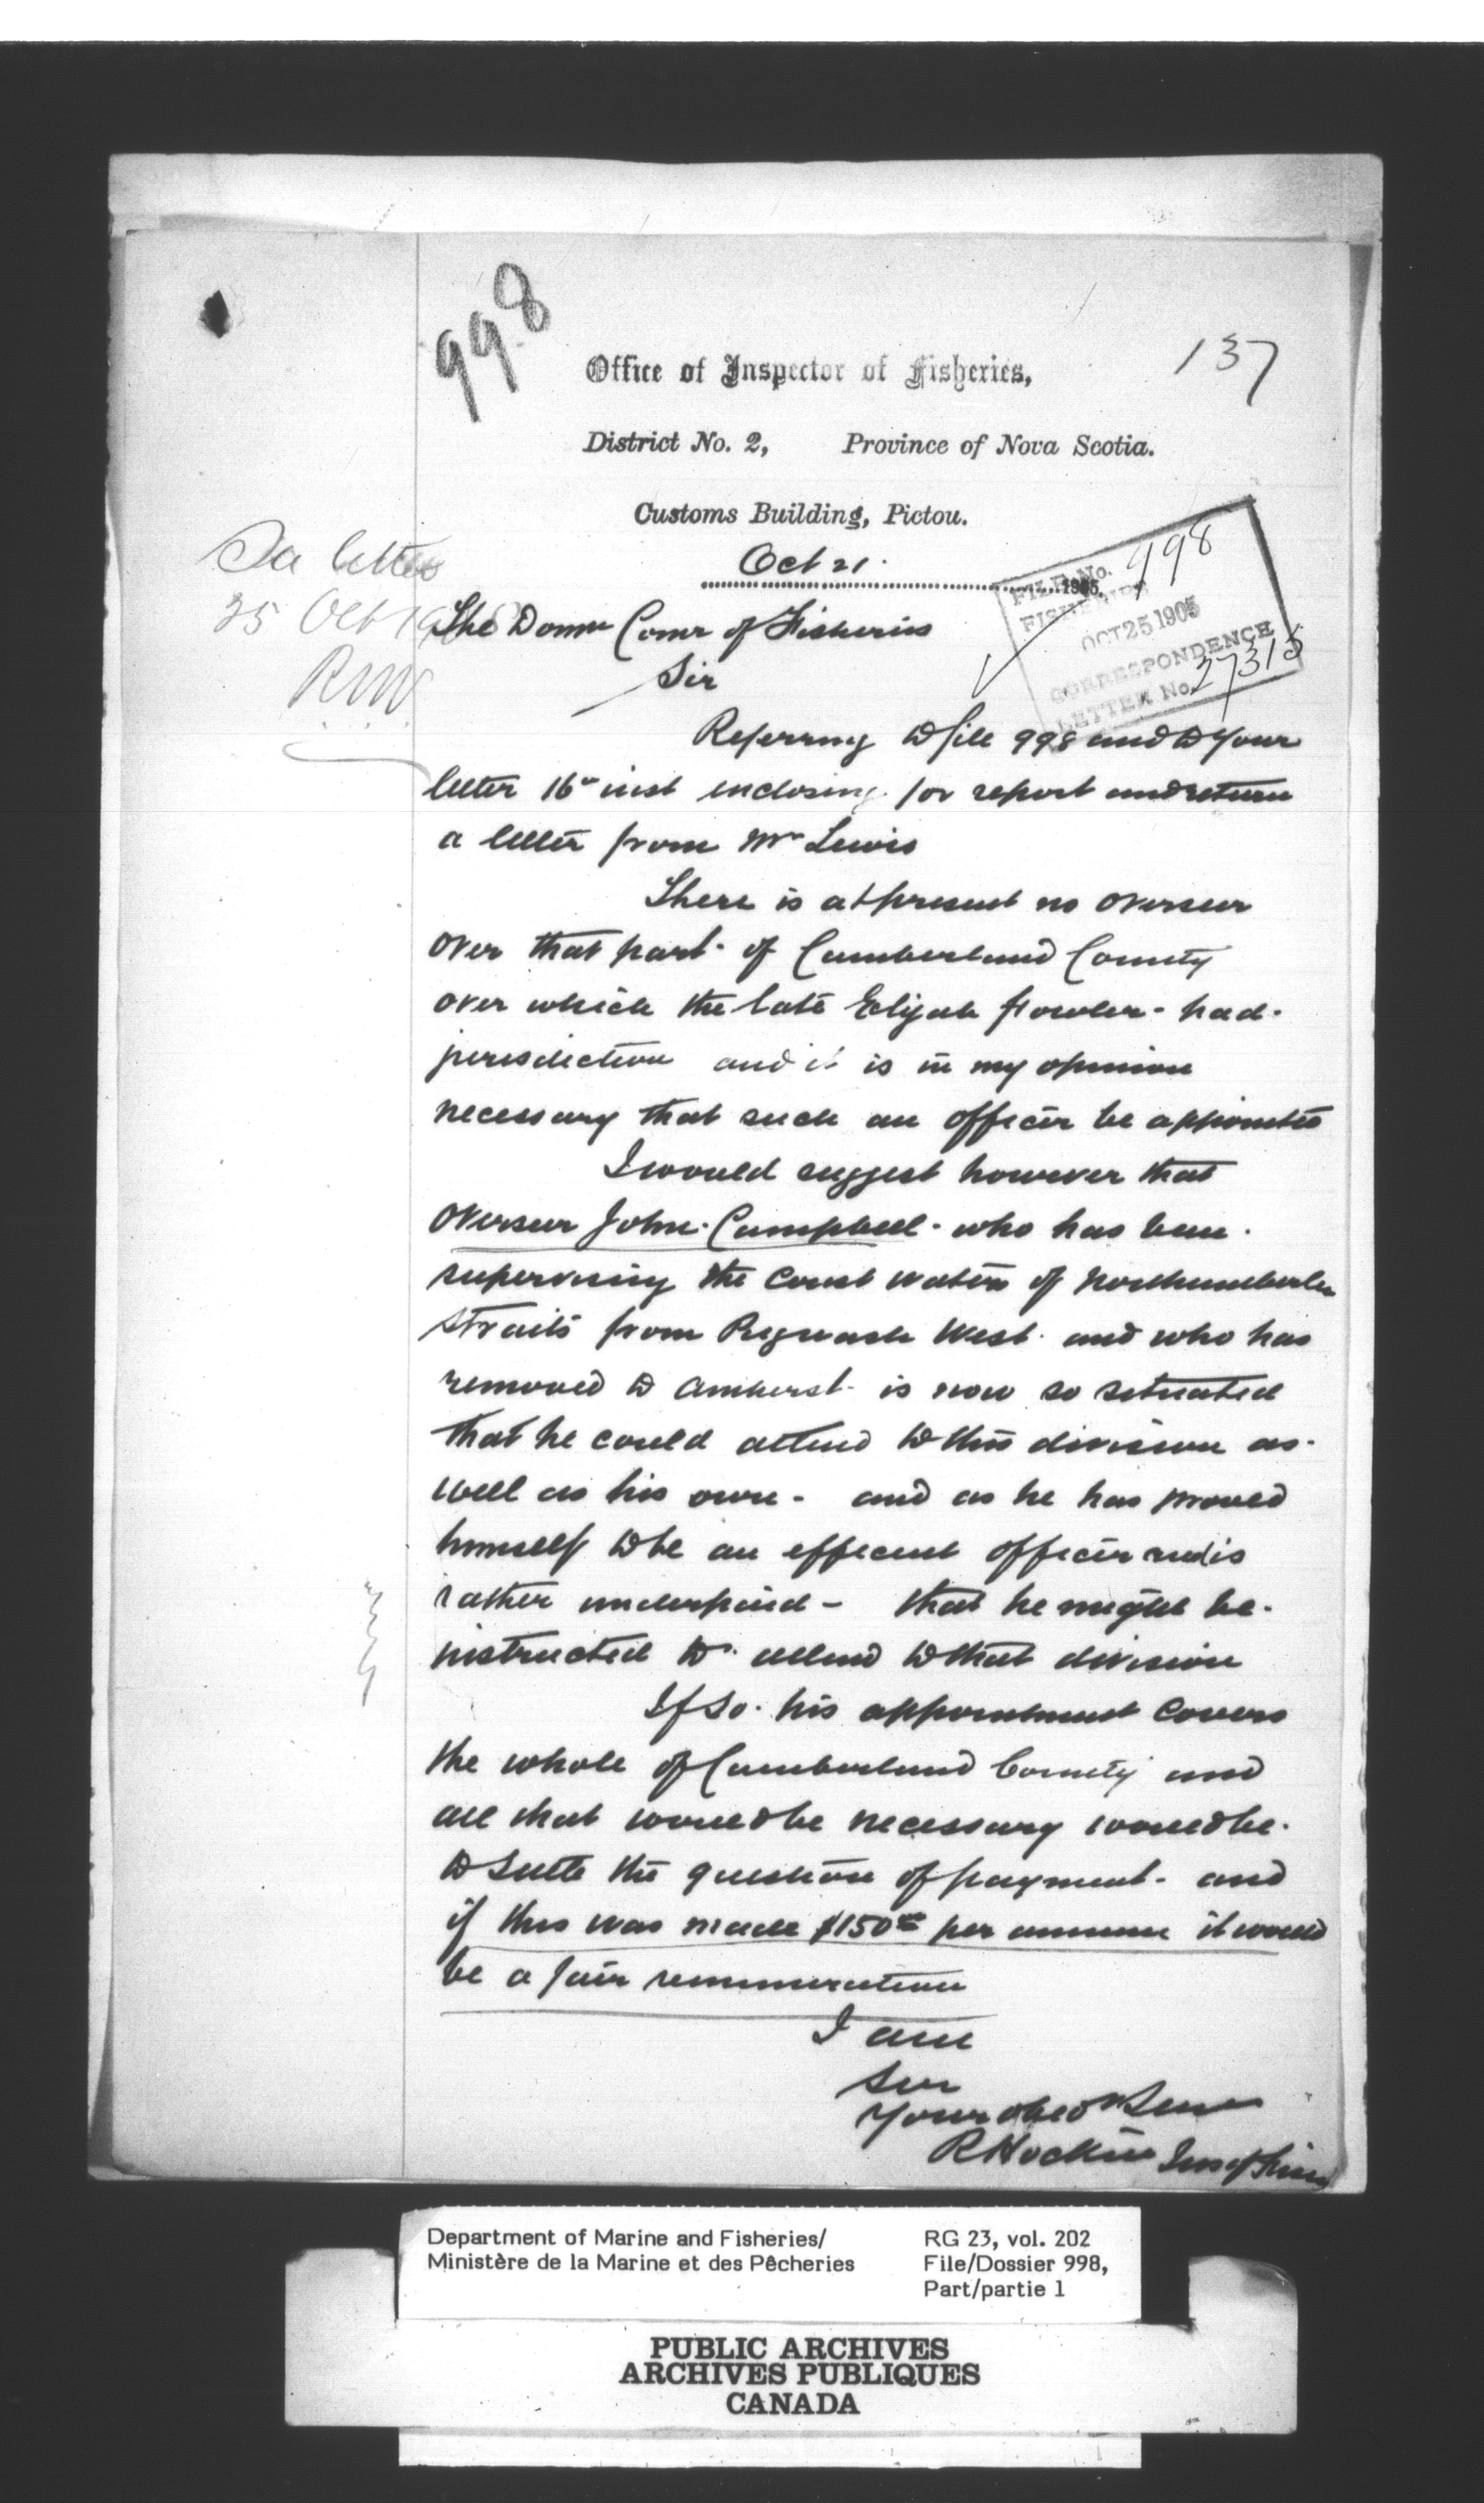 998
137
Office of Inspector of Fisheries,
District No. 2, Province of Nova Scotia.
Customs Building, Pictou.
Oct 21. 1905.
FILE No. 998
FISHERIES
OCT 25 1905
CORRESPONDENCE
LETTER No. 27315
letter
25 Oct 190
RNW
The Domn Comr of Fisheries
Sir
Referring to file 998 and to your
letter 16" inst enclosing for report and return
a letter from Mr Lewis
There is at present no overseer
over that part of Cumberland County
over which the late Elijah Fowler - had
jurisdiction and it is in my opinion
necessary that such an officer be appointed
I would suggest however that
overseer John Campbell - who has been
supervising the coast waters of Northumberlan
Straits from Pugwash West and who has
removed to Amherst - is now so situated
that he could attend to this division as
well as his own - and as he has proved
himself to be an efficient officer and is
rather underpaid - that he might be
instructed to attend to that division
If so his appointment covers
the whole of Cumberland County and
all that would be necessary would be
to settle the question of payment - and
if this was made $150 00 per annum it would
be a fair remuneration
I am
Sir
Your obedt Serv
R Hockin Ins of Fish
Department of Marine and Fisheries/
Ministère de la Marine et des Pêcheries
RG 23, vol. 202
File/Dossier 998,
Part/partie 1
PUBLIC ARCHIVES
ARCHIVES PUBLIQUES
CANADA